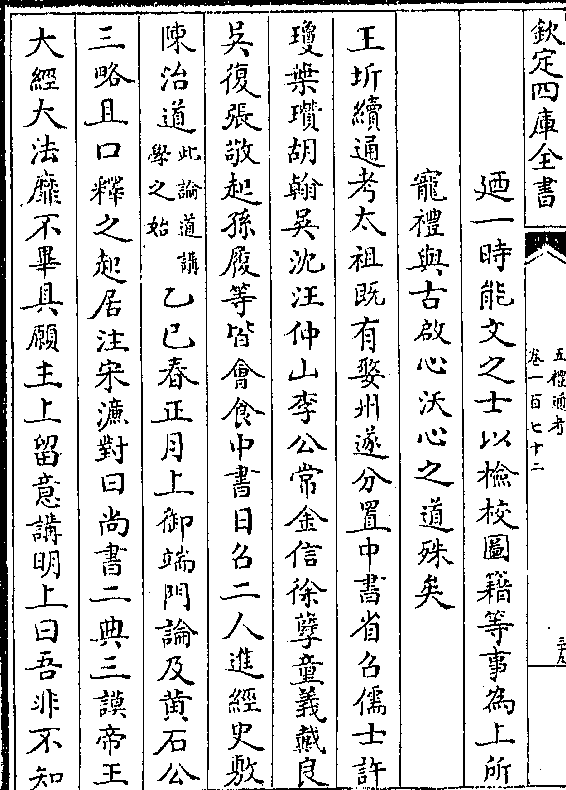 欽定四庫全書
五禮通考
卷一百七十二
三十九
廼一時能文之士以檢校圖籍等事為上所
寵禮與古啟心沃心之道殊矣
王圻續通考太祖既有婺州遂分置中書省召儒士許
瓊葉瓚胡翰吳沈汪仲山李公常金信徐孽童義戴良
吳復張敬起孫履等皆會食中書日召二人進經史敷
陳治道此論道講學之始乙巳春正月上御端門論及黃石公
三略且口釋之起居注宋濂對曰尚書二典三謨帝王
大經大法靡不畢具願主上留意講明上曰吾非不知